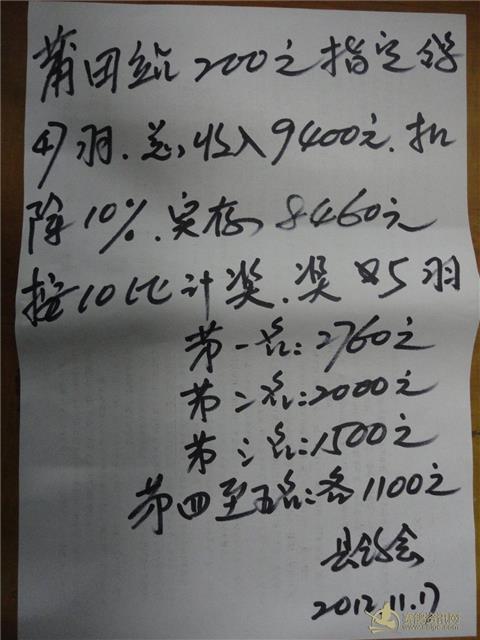 莆田站200元指定鸽
47羽.总收入9400元.扣
除10%.实存8460元
按10比1计奖.奖5羽
第一名:2760元
第二名:2000元
第三名:1500元
第四至五名:各1100元
县鸽会
2012.11.17